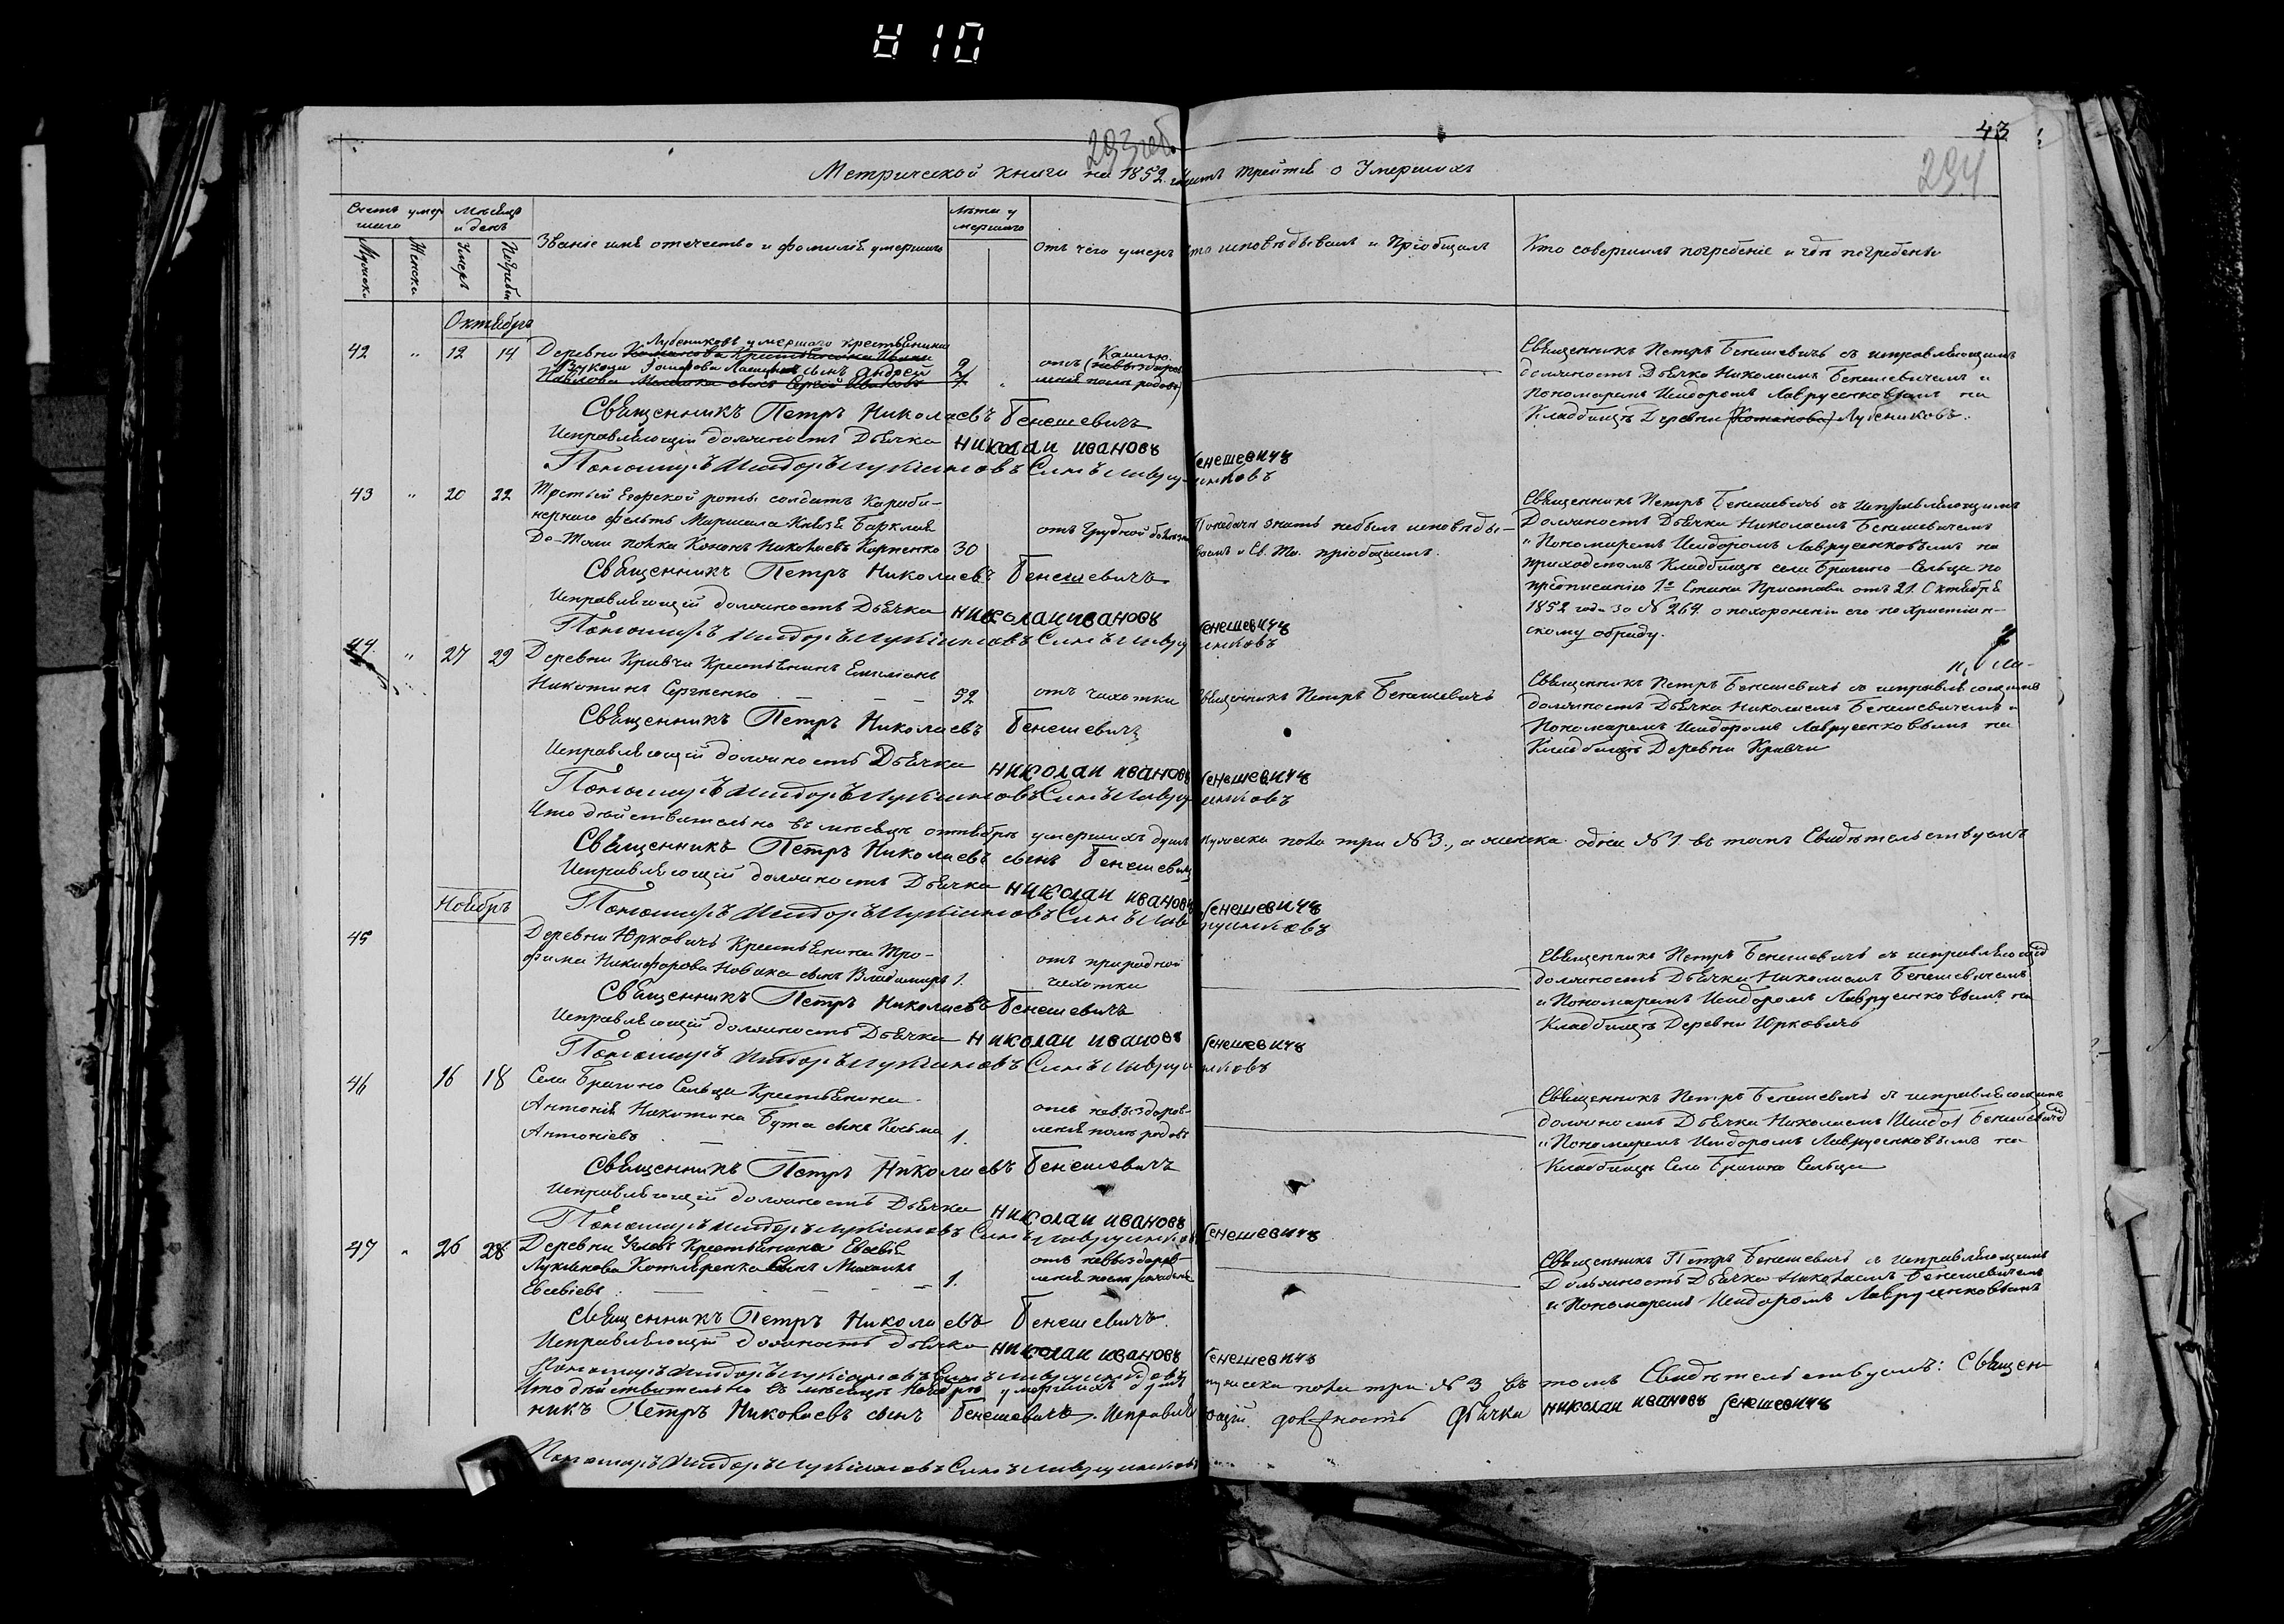 010
293 об
43
294
Метрической книги на 1852. часть третія о Умершихъ
Счетъ умер
шаго
Мужеска
Женска
мѣсяцъ
и день
Умеръ
Погребенъ
Званіе имя отечество и фомилія умершаго
Лѣта у
мершаго
отъ чего умеръ
кто исповѣдывалъ и Пріобщалъ
Кто совершилъ погребеніе и гдѣ погребенъ
Октябрь
42 " 12 14
Лубениковъ умершаго крестьянина
Деревни Команова Крестьянина
сынъ Андрей
2
Кашлю
отъ (невыздоров
ленія полѣ родовъ)
Священникъ Петръ Бенешевичъ съ исправляющимъ
должность Дьячка Николаемъ Бенешевичемъ и
Пономаремъ Исидоромъ Лаврусенковымъ на
Кладбищѣ Деревни (Команова) Лубениковъ.
Священникъ Петръ Николаевъ Бенешевичъ
Исправляющій должность Дьячка николаи ивановъ бенешевичъ
Пономаръ Исидоръ Лукіановъ Синъ Лаврусинковъ
43 " 20 22
Третьей Егерской роты солдатъ Караби-
нернаго фельтъ Маршала Князя Барклая
Де-Толи полка Кононъ Николаевъ Карпенко 30
отъ Грудной болезни
Понедачи знать небылъ исповѣды-
ванъ и Св. Та. пріобщаетъ.
Священникъ Петръ Бенешевичъ съ исправляющимъ
Должность Дьячка Николаемъ Бенешевичемъ
и Пономаремъ Исидоромъ Лаврусенковымъ на
приходскомъ Кладбищѣ села Брагино-Сельца по
предписанію 1го Стана Пристава отъ 21. Октября
1852 года за № 264 о похороненіи его по Христіан-
скому обряду.
Священникъ Петръ Николаевъ Бенешевичъ
Исправляющій должность Дьячка николаи ивановъ бенешевичъ
Пономаръ Исидоръ Лукіановъ Синъ Лаврусинковъ
44. " 27 29
Деревни Кривчи Крестьянинъ Емиліанъ
Никитинъ Сергѣенко 52
отъ чихотки
Священникъ Петръ Бенешевичъ
Священникъ Петръ Бенешевичъ съ исправляющимъ
должность Дьячка Николаемъ Бенешевичемъ и
Пономаремъ Исидоромъ Лаврусенковымъ на
Кладбищѣ Деревни Кривчи
Священникъ Петръ Николаевъ Бенешевичъ
Исправляющій должность Дьячка николаи ивановъ бенешевичъ
Пономаръ Исидоръ Лукіановъ Синъ Лаврусинковъ
Что дѣйствительно въ мѣсяцѣ октябрѣ умершихъ душъ мужеска пола три № 3., а женска одна № 1. въ томъ Свидѣтельствуемъ
Священникъ Петръ Николаевъ сынъ Бенешевичъ
Исправляющій должность Дьячка николаи ивановъ бенешевичъ
Пономаръ Исидоръ Лукіановъ Синъ Лаврусинковъ
Ноябрь
45
Деревни Юрковичь Крестьянина Тро-
фима Никифорова Новака сынъ Владимиръ 1.
отъ природной
чихотки
Священникъ Петръ Бенешевичъ съ исправляющимъ
должность Дьячка Николаемъ Бенешевичемъ
и Пономаремъ Исидоромъ Лаврусенковымъ на
Кладбищѣ Деревни Юрковичь
Священникъ Петръ Николаевъ Бенешевичъ
Исправляющій должность Дьячка николаи ивановъ бенешевичъ
Пономаръ Исидоръ Лукіановъ Синъ Лаврусинковъ
46 16 18
Села Брагино Сельца Крестьянина
Антонія Никитина Бута сынъ Косьма
Антоніевъ 1.
отъ невыздоров-
ленія полѣ родовъ
Священникъ Петръ Бенешевичъ съ исправляющимъ
должность Дьячка Николаемъ Бенешевичемъ
и Пономаремъ Исидоромъ Лаврусенковымъ на
Кладбищѣ Села Брагина Сельца
Священникъ Петръ Николаевъ Бенешевичъ
Исправляющій должность Дьячка николаи ивановъ бенешевичъ
Пономаръ Исидоръ Лукіановъ Синъ Лаврусинковъ
47 " 26 28
Деревни Крестьянина Евсевія
Лукьянова Котляренка Сынъ Михаилъ
Евсевіевъ 1.
отъ невыздоров
ленія послѣ рожденія
Священникъ Петръ Бенешевичъ съ исправляющимъ
Должность Дьячка Николаемъ Бенешевичемъ
и Пономаремъ Исидоромъ Лаврусенковымъ
Священникъ Петръ Николаевъ Бенешевичъ.
Исправляющій должность дьячка николаи ивановъ бенешевичъ
Пономаръ Исидоръ Лукіановъ Синъ Лаврусинковъ
Что дѣйствительно въ мѣсяцѣ Ноябрѣ умершихъ душъ мужеска пола три № 3 въ томъ Свидѣтельствуемъ: Священ-
никъ Петръ Николаевъ сынъ Бенешевичъ. Исправляющій должность дьячка николаи ивановъ бенешевичъ
Пономаръ Исидоръ Лукіановъ Синъ Лаврусинковъ